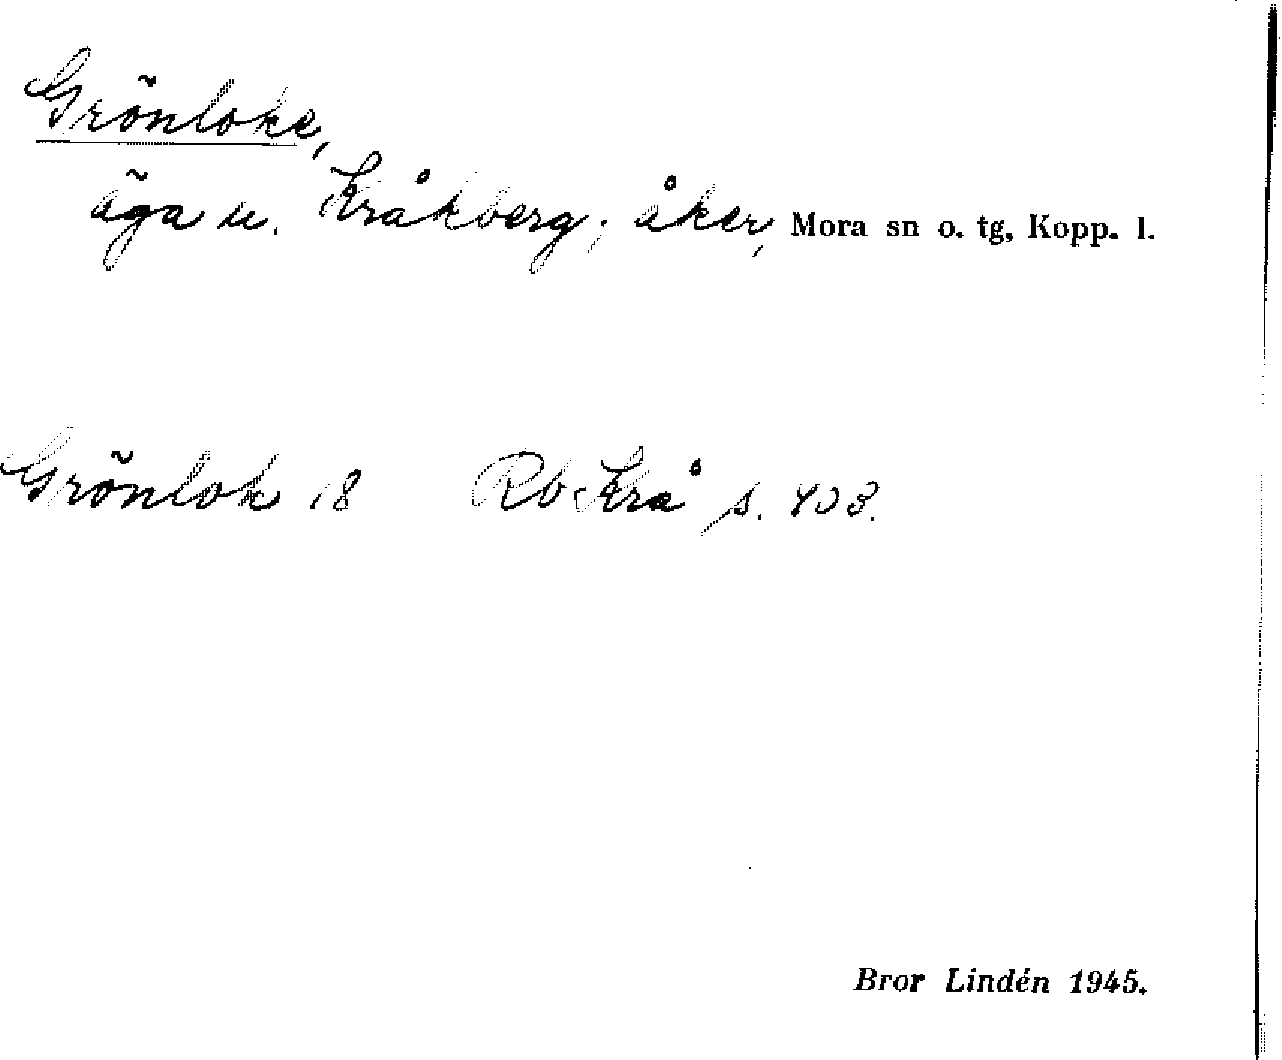 Grönloke,
äga u. Kråkberg; åker, Mora sn o. tg, Kopp. l.
Grönlok 18 Rb Krå s. 403.
Bror Lindén 1945.